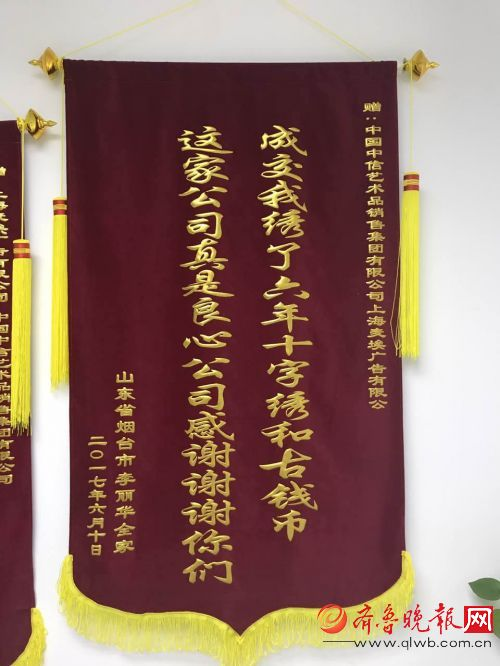 赠：中国中信艺术品销售集团有限公司上海麦埃广告有限公
成交我绣了六年十字绣和古钱币
这家公司真是良心公司感谢谢谢你们
山东省烟台市李丽华全家
二〇一七年六月十日
公司 中国中信艺术品销售集团有限公司
齐鲁晚报网
www.qlwb.com.cn